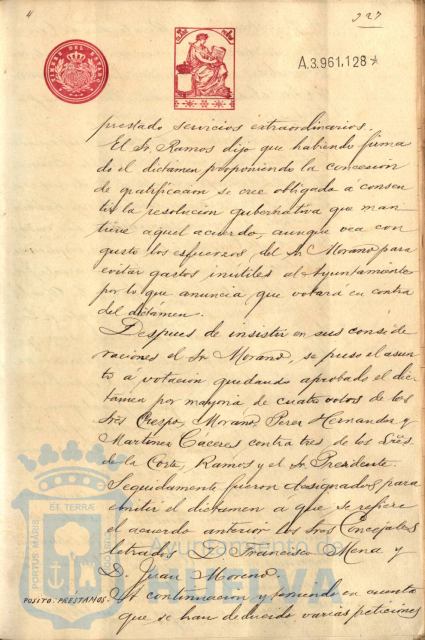 4
327
TIMBRE DEL ESTADO
A.3.961,128
prestado servicios extraordinarios.
El Sr. Ramos dijo que habiendo firma
do el dictámen proponiendo la concesion
de gratificacion se cree obligado a consen
tir la resolucion gubernativa que man
tiene aquel acuerdo, aunque vea con
gusto los esfuerzos del Sr. Morano para
evitar gastos inutiles al Ayuntamiento
por lo que anuncia que votará en contra
del dictámen.
Despues de insistir en sus conside
raciones el Sr. Morano, se puso el asun
to á votacion quedando aprobado el dic
támen por mayoria de cuatro votos de los
Sres. Crespo, Morano, Perez Hernandez y
Martinez Caceres contra tres de los Sres.
de la Corte, Ramos y el Sr. Presidente.
Seguidamente fueron designados para
emitir el dictamen á que se refiere
el acuerdo anterior los Sres. Concejales
letrados D. Francisco Mena y
D. Juan Moreno.
POSITO: PRESTAMOS.
A continuacion y teniendo en cuenta
que se han deducido varias peticiones
PORTUS MARIS ET TERRAE
Ayuntamiento de
HUELVA